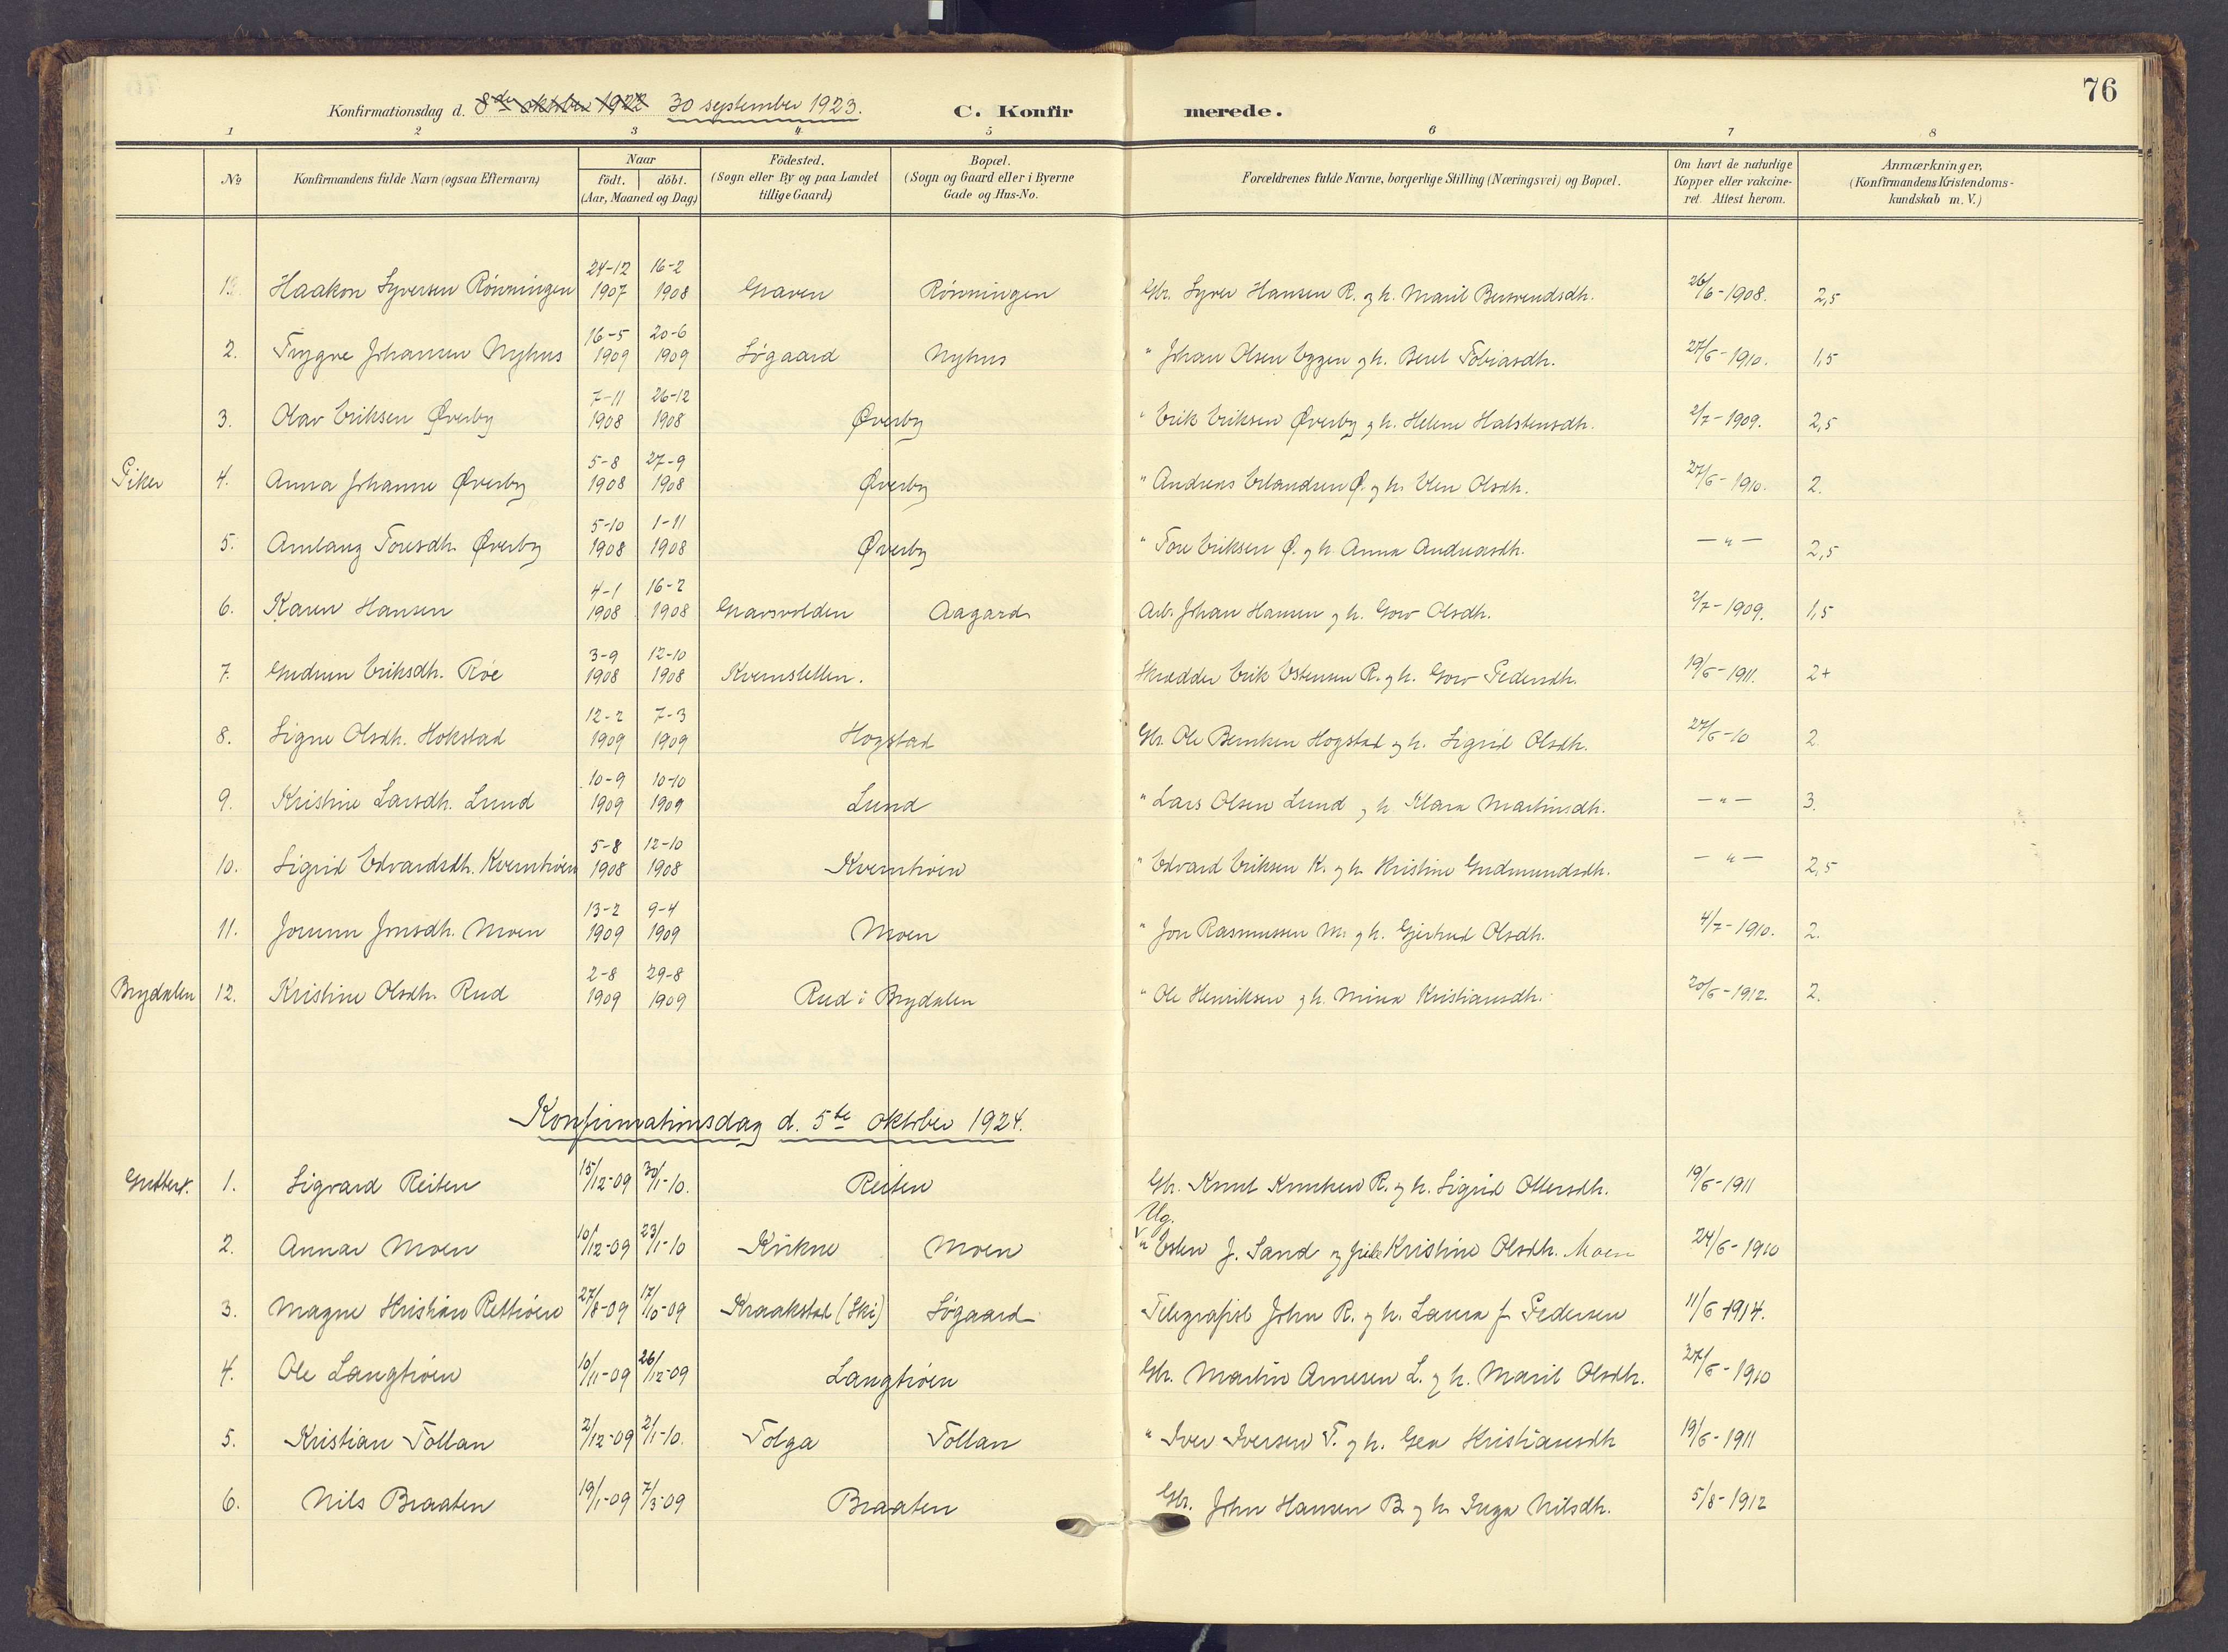 76
Konfirmationsdag d. 8de oktober 1922 30 september 1923. C. Konfirmerede.
1 2 3 4 5 6 7 8
No Konfirmandens fulde Navn (ogsaa Efternavn) Naar födt. döbt. (Aar, Maaned og Dag) Födested. (Sogn eller By og paa Landet tillige Gaard) Bopæl. (Sogn og Gaard eller i Byerne Gade og Hus-No. Forældrenes fulde Navne, borgerlige Stilling (Næringsvei) og Bopæl. Om havt de naturlige Kopper eller vakcineret. Attest herom. Anmærkninger, (Konfirmandens Kristendomskundskab m. V.)
1. Haakon Syversen Rönningen 24-12 1907 16-2 1908 Graven Rönningen Gbr. Syver Hansen R. og h. Marit Bersvendsdh. 26/6-1908. 2,5
2. Trygve Johansen Nyhus 16-5 1909 20-6 1909 Søgaard Nyhus " Johan Olsen Eggen og h. Beret Tobiasdh. 27/6-1910. 1,5
3. Olav Eriksen Øverby 7-11 1908 26-12 1908 Øverby " Erik Eriksen Øverby og h. Helene Halstensdh. 2/7-1909. 2,5
Piker 4. Anna Johanne Øverby 5-8 1908 27-9 1908 Øverby " Andreas Erlandsen Ø. og h. Elen Olsdh. 27/6-1910. 2.
5. Arnlaug Toresdh. Øverby 5-10 1908 1-11 1908 Øverby " Tore Eriksen Ø. og h. Anna Andreasdh. — " — 2,5
6. Karen Hansen 4-1 1908 16-2 1908 Gravsvolden Aagard Arb. Johan Hansen og h. Goro Olsdh. 2/7-1909. 1,5
7. Gudrun Eriksdh. Röe 3-9 1908 12-10 1908 Kvernsletten. Skrædder Erik Estensen R. og h. Goro Pedersdh. 19/6-1911. 2+
8. Signe Olsdh. Hokstad 12-2 1909 7-3 1909 Hogstad Gbr. Ole Berntsen Hogstad og h. Sigrid Olsdh. 27/6-10 2.
9. Kristine Larsdh. Lund 10-9 1909 10-10 1909 Lund " Lars Olsen Lund og h. Klara Martinsdh. — " — 3.
10. Sigrid Edvardsdh. Kverntröen 5-8 1908 12-10 1908 Kverntröen " Edvard Eriksen K. og h. Kristine Gudmundsdh. — " — 2,5
11. Jorunn Jonsdh. Moen 13-2 1909 9-4 1909 Moen " Jon Rasmussen M. og h. Gjertrud Olsdh. 4/7-1910. 2.
Brydalen 12. Kristine Olsdh. Rud 2-8 1909 29-8 1909 Rud i Brydalen " Ole Henriksen og h. Mina Kristiansdh. 20/6-1912. 2.
Konfirmationsdag d. 5te oktober 1924.
Gutter. 1. Sigvard Reiten 15/12-09 30/1-10. Reiten Gbr. Knut Knutsen R. og h. Sigrid Ottersdh. 19/6-1911
Ug.
2. Annar Moen 10/12-09 23/1-10 Kirkne Moen " Esten J. Sand og pike Kristine Olsdh. Moen 24/6-1910
3. Magne Kristian Rettröen 27/8-09 17/10-09 Kraakstad (Ski) Søgaard Telegrafist John R. og h. Laura f. Pedersen 11/6-1914.
4. Ole Langtröen 10/11-09 26/12-09 Langtröen Gbr. Martin Arnesen L. og h. Marit Olsdh. 27/6-1910
5. Kristian Tollan 2/12-09 2/1-10. Tolga Tollan " Iver Iversen T. og h. Gea Kristiansdh 19/6-1911
6. Nils Braaten 19/1-09 7/3-09 Braaten Gbr. John Hansen B og h. Inga Nilsdh. 5/8-1912